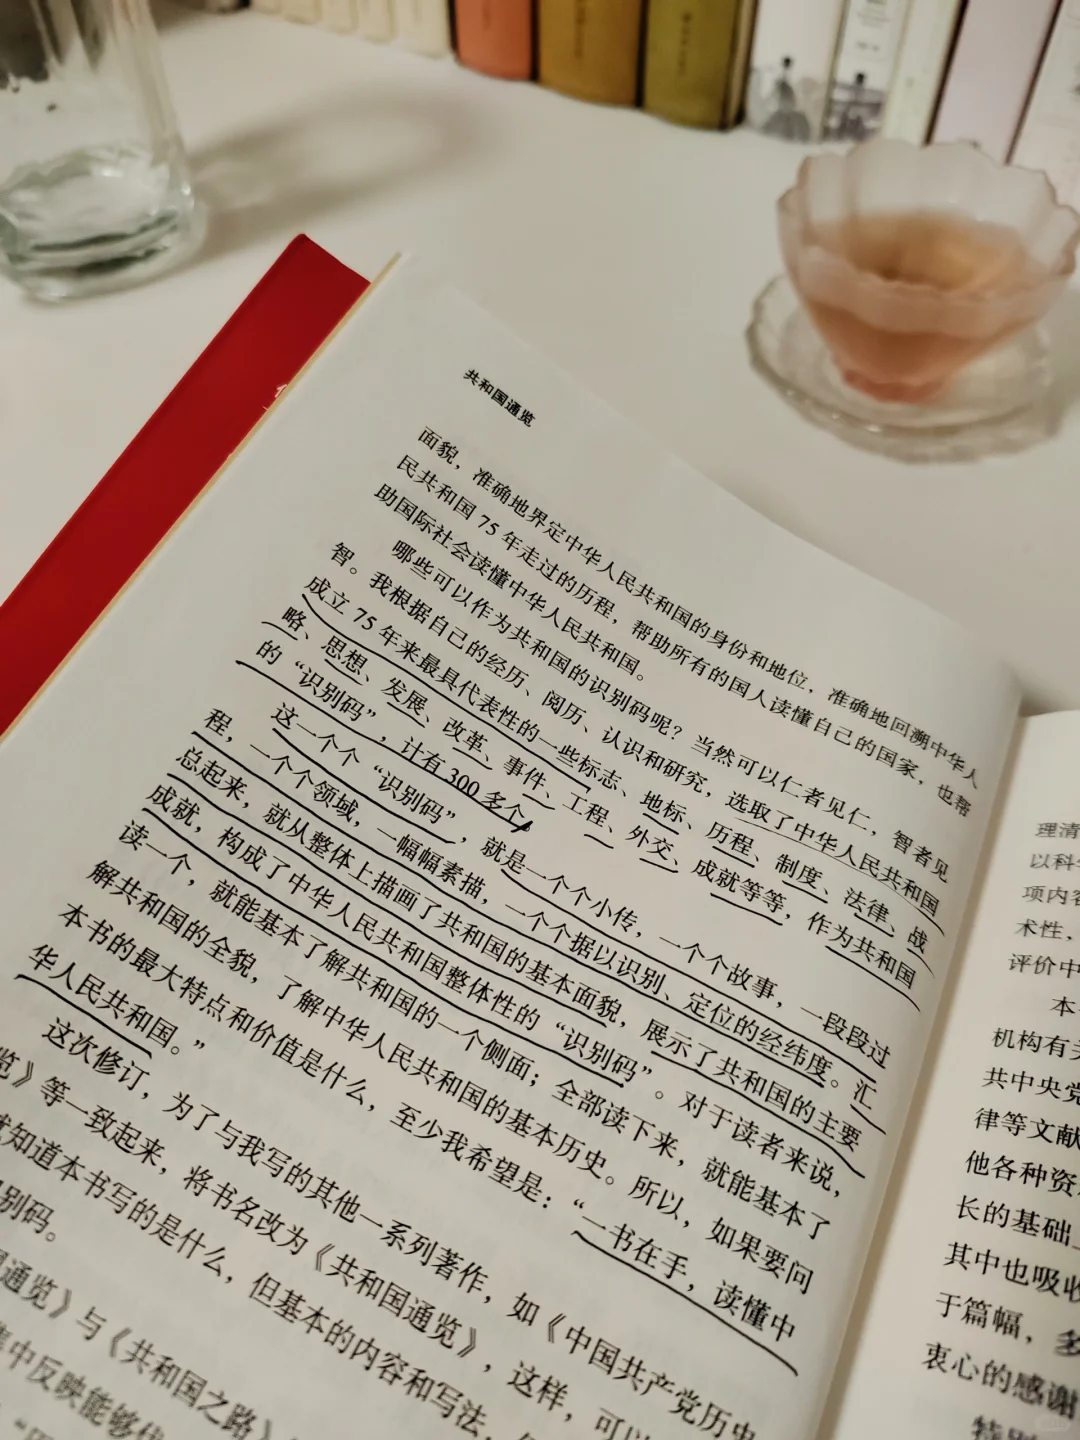 共和国通览
面貌，准确地界定中华人民共和国的身份和地位，准确地回溯中华人
民共和国 75 年走过的历程，帮助所有的国人读懂自己的国家，也帮
助国际社会读懂中华人民共和国。
哪些可以作为共和国的识别码呢？当然可以仁者见仁，智者见
智。我根据自己的经历、阅历、认识和研究，选取了中华人民共和国
成立 75 年来最具代表性的一些标志、地标、历程、制度、法律、战
略、思想、发展、改革、事件、工程、外交、成就等等，作为共和国
的“识别码”，计有 300 多个。
这一个个“识别码”，就是一个个小传，一个个故事，一段段过
程，一个个领域，一幅幅素描，一个个据以识别、定位的经纬度。汇
总起来，就从整体上描画了共和国的基本面貌，展示了共和国的主要
成就，构成了中华人民共和国整体性的“识别码”。对于读者来说，
读一个，就能基本了解共和国的一个侧面；全部读下来，就能基本了
解共和国的全貌，了解中华人民共和国的基本历史。所以，如果要问
本书的最大特点和价值是什么，至少我希望是：“一书在手，读懂中
华人民共和国。”
这次修订，为了与我写的其他一系列著作，如《中国共产党历史
览》等一致起来，将书名改为《共和国通览》，这样，可以
知道本书写的是什么，但基本的内容和写法，
别码。
通览》与《共和国之路》
中反映能够代
理清
以科学
项内容
术性，
评价中
本
机构有关
共中央党
律等文献
他各种资
长的基础上
其中也吸收
于篇幅，多
衷心的感谢
特别